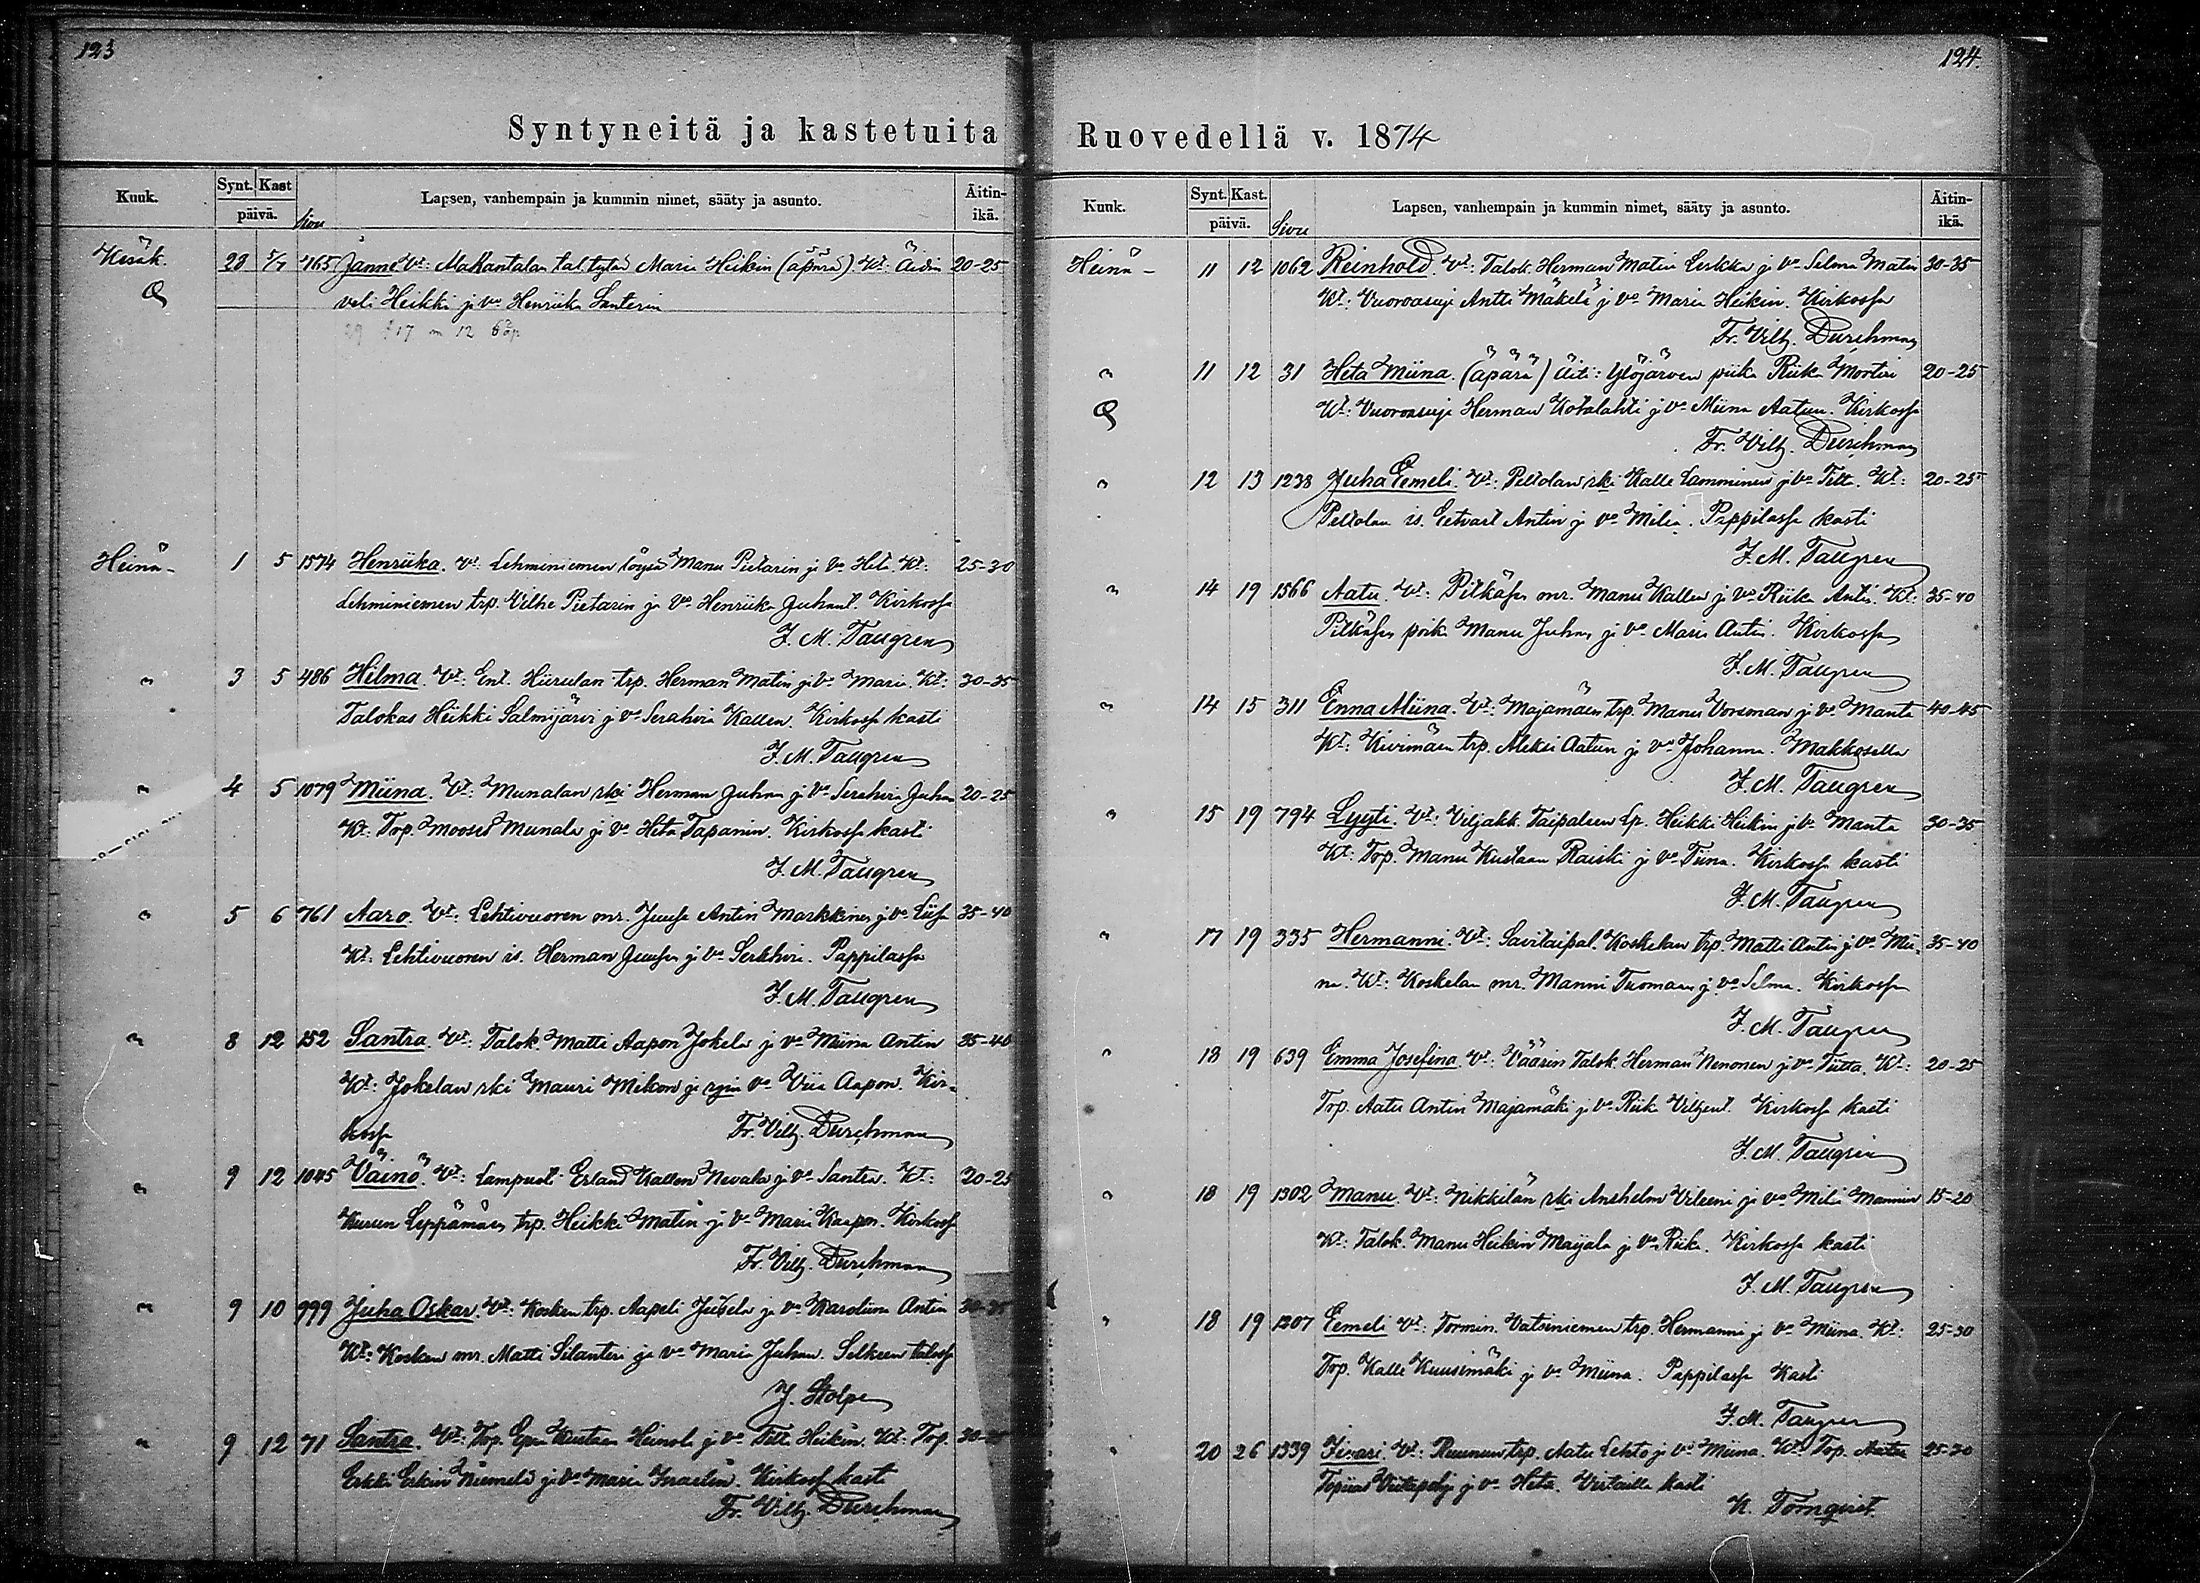 123
Syntyneitä ja kastetuita
Kuuk.
Synt. Kast
päivä.
Sivu
Lapsen, vanhempain ja kummin nimet, sääty ja asunto.
Äitin-
ikä.
Kesäk. 23 5/7 765 Janne Vt: Makantalan tal. tytär Maria Heikin (äpärä) Kt: Äidin 20-25
veli Heikki ja vo Henriika Santerin
29 17 m 12
Heinä- 1 5 1574 Henriika. Vt. Lehminiemen Manu Pietarin ja Vo Heta. Kt: 25-30
Lehminiemen trp. Vilhe Pietarin ja Vo Henriika Juhant. Kirkossa
J. M. Taugren
" 3 5 486 Hilma. Vt: Ent. Hiirulan trp. Herman Matin ja Vo Maria. Kt: 30-35
Talokas Heikki Salmijärvi ja Vo Serahvia Kallen. Kirkossa kasti
J. M. Taugren
" 4 5 1079 Miina. Vt: Munalan rki Herman Juhan ja Vo Serahvia Juhan 20-25
Kt: Trp. Mooses Munala ja Vo Heta Tapanin. Kirkossa kasti
J. M. Taugren
" 5 6 761 Aaro. Vt: Lehtivuoren mr. Juusa Antin Markkinen ja Vo Liisa 35-40
Kt: Lehtivuoren is. Herman Juusan ja Vo Serahvia. Pappilassa
J. M. Taugren
" 8 12 152 Santra. Vt: Talok. Matti Aapon Jokela ja Vo Miina Antin 35-40
Kt: Jokelan rki Mauri Mikon ja Vo Viia Aapon. Kir-
kossa Fr. Vilh. Durchman
" 9 12 1045 Väinö. Vt: Lampuot. Erland Kallen Nevala ja Vo Santra. Kt: 20-25
Kurun Leppämäen trp. Heikki Matin ja Vo Maria Kaapon. Kirkossa
Fr. Vilh. Durchman
" 9 10 999 Juha Oskar. Vt: Kosken trp. Aapeli Jusela ja Vo Karoliina Antin 30-35
Kt: Kosken mr. Matti Silanteri ja Vo Maria Juhan. Selkeen talossa
J. Stolpe
" 9 12 71 Santra. Vt: Trp. Kustaan Heinola ja Vo Heikin. Kt: Trp.
Erkki Erkin Niemelä ja Vo Maria Israelin. Kirkossa kasti
Fr. Vilh. Durchman
124.
Ruovedellä v. 1874
Kuuk.
Synt. Kast.
päivä.
Sivu
Lapsen, vanhempain ja kummin nimet, sääty ja asunto.
Äitin-
ikä.
Heinä- 11 12 1062 Reinhold. Vt: Talok. Herman Matin Eerkka ja Vo Selma Matin 30-35
Kt: Vuoroasuja Antti Mäkelä ja Vo Maria Heikin. Kirkossa
Fr. Vilh. Durchman
" 11 12 31 Heta Miina. (äpärä) Äiti: Ylöjärven piika Riika Mortin 20-25
Kt: Vuoroasuja Herman Kotalahti ja Vo Miina Aatun. Kirkossa
Fr. Vilh. Durchman
" 12 13 1238 Juha Eemeli. Vt: Peltolan rki Kalle Lamminen ja Vo Tilta. Kt: 20-25
Peltolan is. Eetvart Antin ja Vo Milia. Pappilassa kasti
J. M. Taugren
" 14 19 1566 Aatu. Vt: Pitkäsen mr. Manu Kallen ja Vo Riika Antin. Kt: 35-40
Pitkäsen poika Manu Juhan ja Vo Maria Antin. Kirkossa
J. M. Taugren
" 14 15 311 Enna Miina. Vt: Majamäen trp. Manu Vorsman ja Vo Manta 40-45
Kt: Kivimäen trp. Aleksi Aatun ja Vo Johanna. Makkosella
J. M. Taugren
" 15 19 794 Lyyti. Vt: Viljakk. Taipaleen Lp. Heikki Heikin ja Vo Manta 30-35
Kt: Trp. Manu Kustaan Raiski ja Vo Tiina. Kirkossa kasti
J. M. Taugren
" 17 19 335 Hermanni. Vt: Savitaipal. Koskelan trp. Matti Antin ja Vo Mii- 35-40
na. Kt: Koskelan mr. Manni Tuomaan ja Vo Selma. Kirkossa
J. M. Taugren
" 18 19 639 Emma Josefina. Vt: Väärin Talok. Herman Nenonen ja Vo Tiitta. Kt: 20-25
Trp. Aatu Antin Majamäki ja Vo Riika Viljent. Kirkossa kasti
J. M. Taugren
" 18 19 1302 Manu. Vt: Nikkilän rki Anshelm Vileeni ja Vo Milia Mannin 15-20
Kt: Talok. Manu Heikin Maijala ja Vo Riika. Kirkossa kasti
J. M. Taugren
" 18 19 1207 Eemeli Vt: Tormin. Vatsiniemen trp. Hermanni ja Vo Miina. Kt: 25-30
Trp. Kalle Kuusimäki ja Vo Miina. Pappilassa Kasti
J. M. Taugren
" 20 26 1339 Iivari. Vt: Ruunun trp. Aatu Lehto ja Vo Miina. Kt: Trp. Aatu 25-30
Topias Viitapohja ja Vo Heta. Virtailla kasti
K. Törnqvist